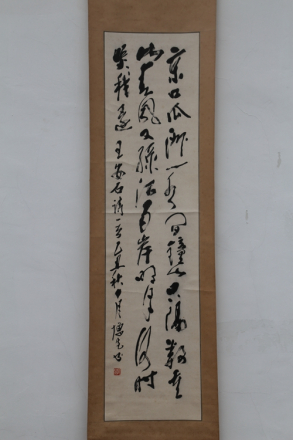 京口瓜洲一水间钟山只隔数重
山春风又绿江南岸明月何时
照我还 王安石诗一首